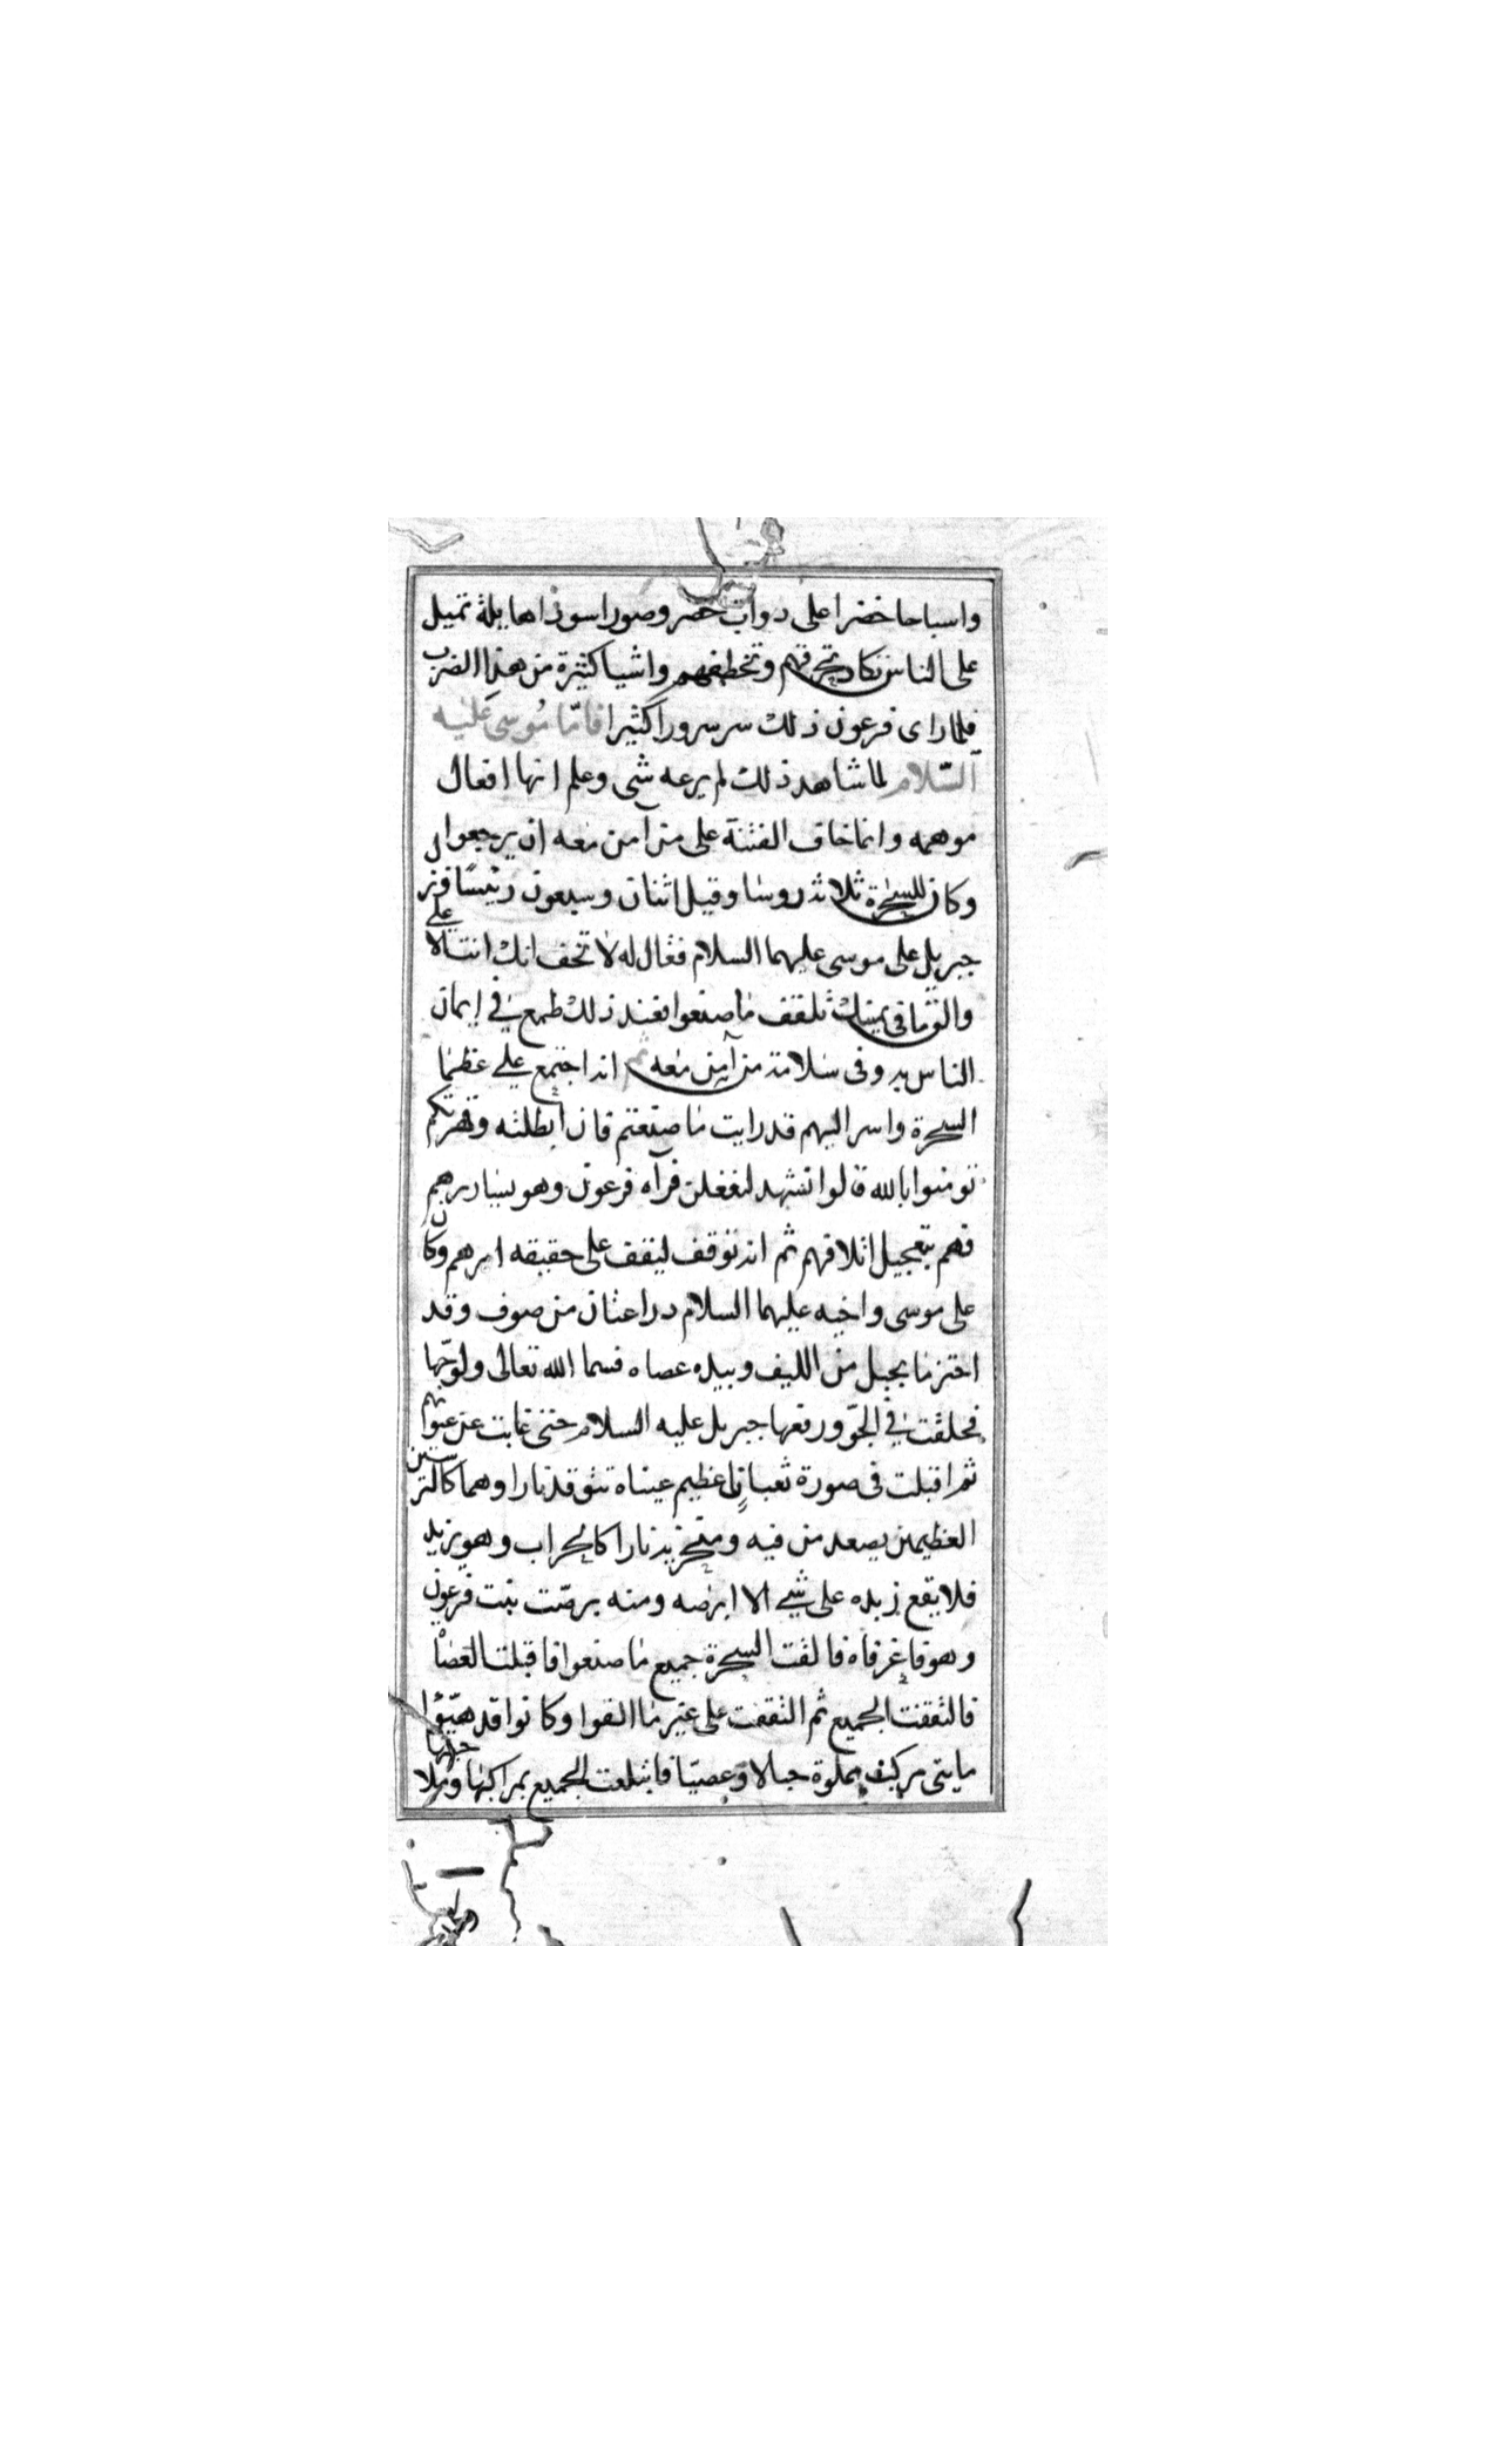 واسباحا خضرا على دواب خضر وصورا سوذا هايلة تميل
على الناس تكاد تحرقهم وتخطفهم واشيا كثيرة من هذا الضرب
فلما راى فرعون ذلك سر سرورا كثيرا فامّا مُوسى عَليه
السّلام لما شاهد ذلك لم يرعه شى وعلم انها افعال
موهمه وانما خاف الفتنة على من آمن معه ان يرجعوا
وكان للسحرة ثلاثه روسا وقيل اثنان وسبعون رئيسًا فنزل
جبريل على موسى عليهما السلام فقال له لا تخف انك انت الاعلى
والق ما فى يمينك تلقف ما صنعوا فعند ذلك طمع في إيمان
الناس به وفى سلامة من آمن معه ثم انه اجتمع على عظما
السحرة واسر اليهم قد رايت ما صنعتم فان ابطلته وقهرتكم
تومنوا بالله قالوا نشهد لنفعلن فرآه فرعون وهو يساررهم
فهم بتعجيل اتلافهم ثم انه توقف ليقف على حقيقه امرهم وكان
على موسى واخيه عليهما السلام دراعتان من صوف وقد
احتزما بحبل من الليف وبيده عصاه فسما الله تعالى ولوّحها
فحلقت في الجوّ ورفعها جبريل عليه السلام حتى غابت عن عيونهم
ثم اقبلت فى صورة ثعبانا عظيم عيناه تتوقد نارا وهما كالترسين
العظيمين يصعد من فيه ومنخريه نارا كالحراب وهو يزبد
فلا يقع زبده على شي الا ابرصه ومنه برصّت بنت فرعون
وهو فاغر فاه فالقت السحرة جميع ما صنعوا فاقبلت العصا
فالتقفت الجميع ثم التقفت على غير ما القوا وكانوا قد هيّؤا
مايتى مركب مملوة حبالا وعصيّا فابتلعت الجميع بمراكبها وملاحيها